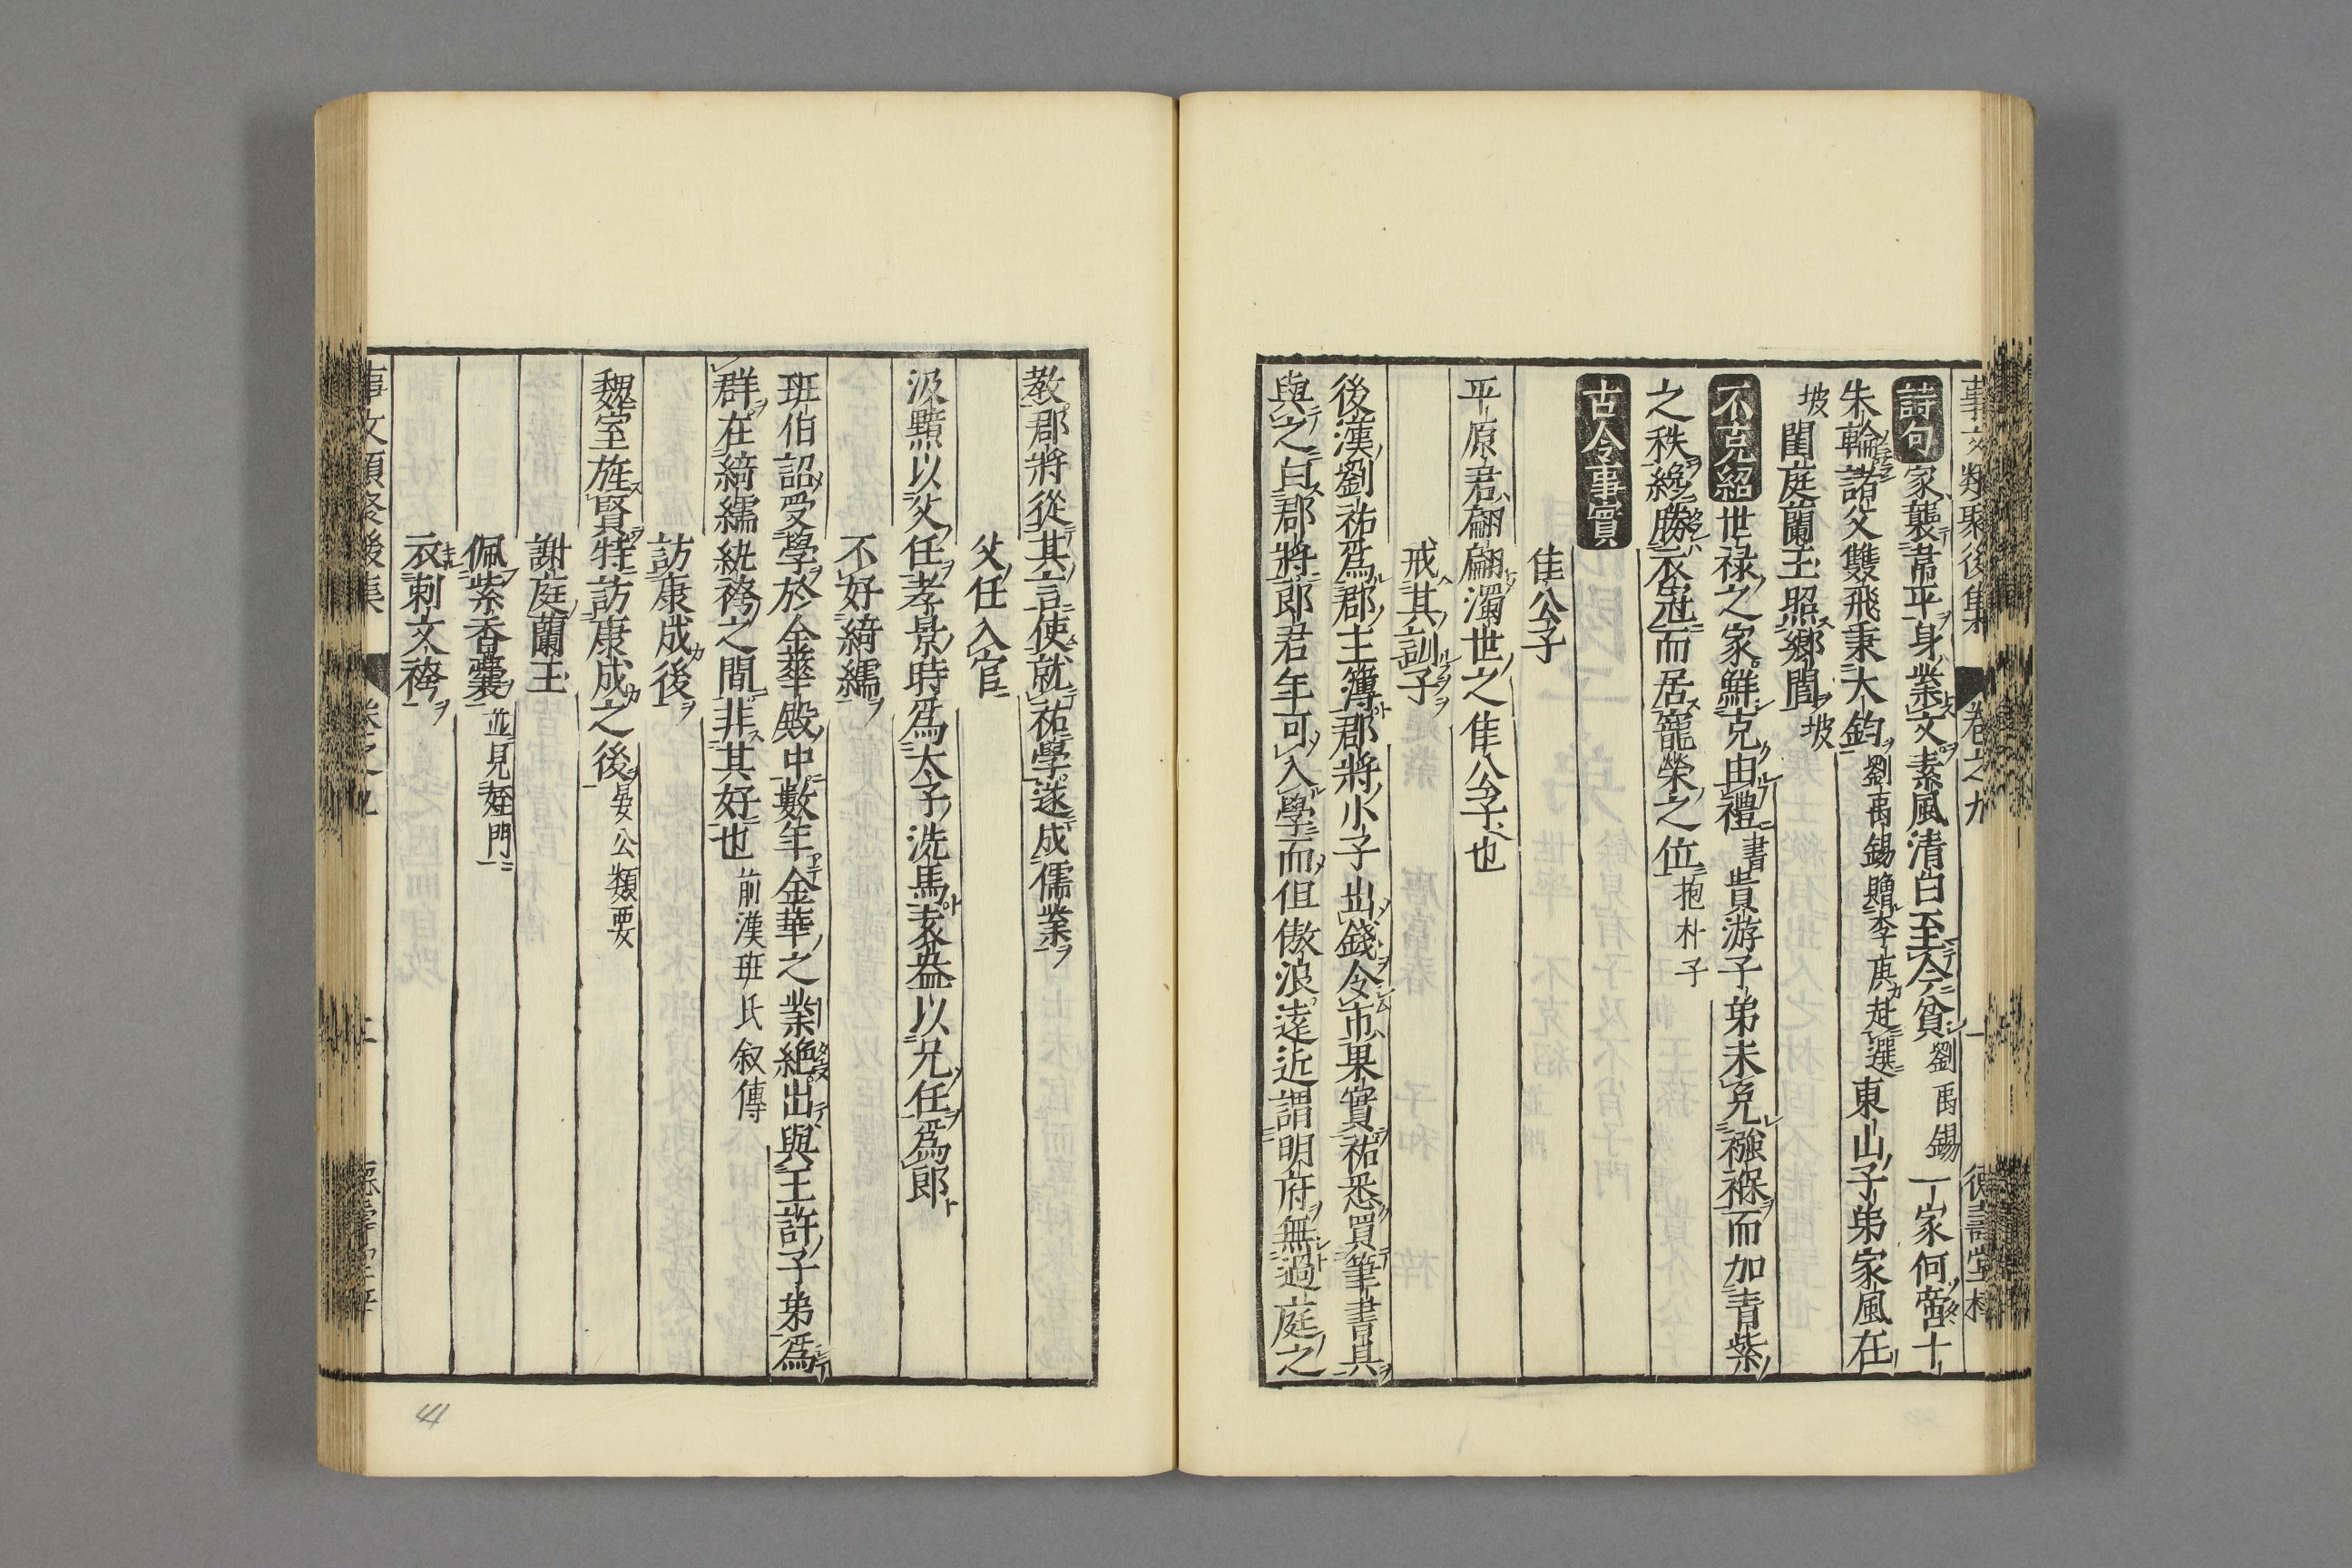 事文類聚後集 卷之九
詩句 家襲韋平身業文素風清白至今貧 劉禹錫 一家何啻十
朱輪諸父雙飛秉大鈞 劉禹錫贈李庚赴選 東山子弟家風在
坡 閨庭蘭玉照鄉閭 坡
不克紹 世祿之家鮮克由禮 書 貴游子弟未免襁褓而加青紫
之秩纔勝衣冠而居寵榮之位 抱朴子
古今事實
佳公子
平原君翩翩濁世之佳公子也
戒其訓子
後漢劉祐爲郡主簿郡將小子出錢令市果實祐悉買筆書具
與之白郡將郎君年可入學而但傲浪遠近謂明府無過庭之
教郡將從其言使就祐學遂成儒業
父任入官
汲黯以父任孝景時爲太子洗馬袁盎以兄任爲郎
不好綺繻
班伯詔受學於金華殿中數年金華之業絕出與王許子弟爲
群在綺繻紈袴之間非其好也 前漢班氏叙傳
訪康成後
魏室旌賢特訪康成之後 晏公類要
謝庭蘭玉
佩紫香囊 並見姪門
衣刺文袴
事文類聚後集 卷之九
44